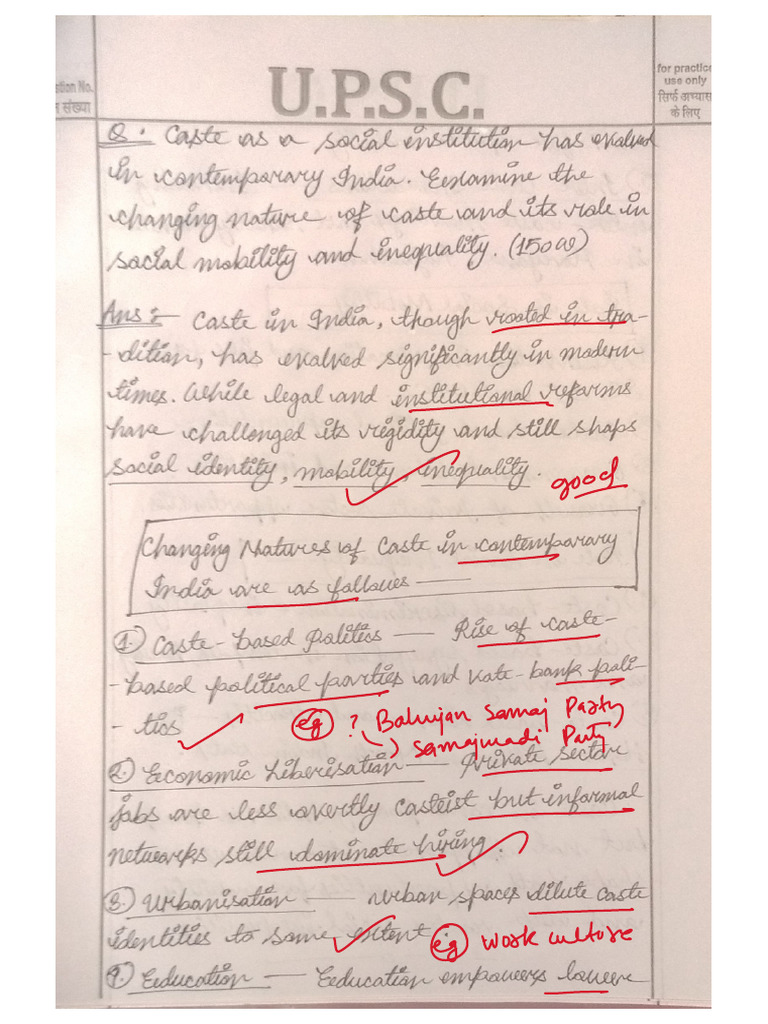 stion No.
न संख्या
U.P.S.C.
for practice
use only
सिर्फ अभ्यास
के लिए
Q. Caste as a social institution has evolved
in contemporary India. Examine the
changing nature of caste and its role in
social mobility and inequality. (150W)
Ans:- Caste in India, though rooted in tra-
-dition, has evolved significantly in modern
times. While legal and institutional reforms
have challenged its rigidity and still shaps
social identity, mobility, inequality.
good
Changing Natures of Caste in contemporary
India are as follows —
1. Caste-based Politics — Rise of caste-
-based political parties and vote-bank poli-
-tics
eg ? Bahujan Samaj Party
Samajwadi Party
2. Economic Liberisation — Private sector
jobs are less overtly casteist but informal
networks still dominate hiring.
3. Urbanisation — urban spaces dilute caste
identities to some extent
eg work culture
4. Education — Education empowers lower